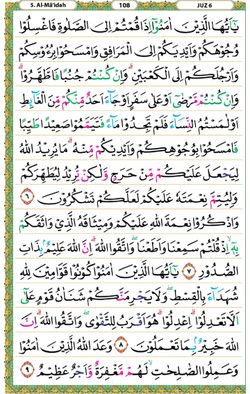 5. Al-Mâ'idah 108 JUZ 6
يٰٓاَيُّهَا الَّذِيْنَ اٰمَنُوْٓا اِذَا قُمْتُمْ اِلَى الصَّلٰوةِ فَاغْسِلُوْا
وُجُوْهَكُمْ وَاَيْدِيَكُمْ اِلَى الْمَرَافِقِ وَامْسَحُوْا بِرُءُوْسِكُمْ
وَاَرْجُلَكُمْ اِلَى الْكَعْبَيْنِۗ وَاِنْ كُنْتُمْ جُنُبًا فَاطَّهَّرُوْاۗ
وَاِنْ كُنْتُمْ مَّرْضٰٓى اَوْ عَلٰى سَفَرٍ اَوْ جَاۤءَ اَحَدٌ مِّنْكُمْ مِّنَ الْغَاۤىِٕطِ
اَوْ لٰمَسْتُمُ النِّسَاۤءَ فَلَمْ تَجِدُوْا مَاۤءً فَتَيَمَّمُوْا صَعِيْدًا طَيِّبًا
فَامْسَحُوْا بِوُجُوْهِكُمْ وَاَيْدِيْكُمْ مِّنْهُۗ مَا يُرِيْدُ اللّٰهُ
لِيَجْعَلَ عَلَيْكُمْ مِّنْ حَرَجٍ وَّلٰكِنْ يُّرِيْدُ لِيُطَهِّرَكُمْ
وَلِيُتِمَّ نِعْمَتَهٗ عَلَيْكُمْ لَعَلَّكُمْ تَشْكُرُوْنَ ٦
وَاذْكُرُوْا نِعْمَةَ اللّٰهِ عَلَيْكُمْ وَمِيْثَاقَهُ الَّذِيْ وَاثَقَكُمْ
بِهٖٓۙ اِذْ قُلْتُمْ سَمِعْنَا وَاَطَعْنَاۖ وَاتَّقُوا اللّٰهَۗ اِنَّ اللّٰهَ عَلِيْمٌۢ بِذَاتِ
الصُّدُوْرِ ٧ يٰٓاَيُّهَا الَّذِيْنَ اٰمَنُوْا كُوْنُوْا قَوَّامِيْنَ لِلّٰهِ
شُهَدَاۤءَ بِالْقِسْطِۖ وَلَا يَجْرِمَنَّكُمْ شَنَاٰنُ قَوْمٍ عَلٰٓى
اَلَّا تَعْدِلُوْاۗ اِعْدِلُوْاۗ هُوَ اَقْرَبُ لِلتَّقْوٰىۖ وَاتَّقُوا اللّٰهَۗ اِنَّ
اللّٰهَ خَبِيْرٌۢ بِمَا تَعْمَلُوْنَ ٨ وَعَدَ اللّٰهُ الَّذِيْنَ اٰمَنُوْا
وَعَمِلُوا الصّٰلِحٰتِۙ لَهُمْ مَّغْفِرَةٌ وَّاَجْرٌ عَظِيْمٌ ٩